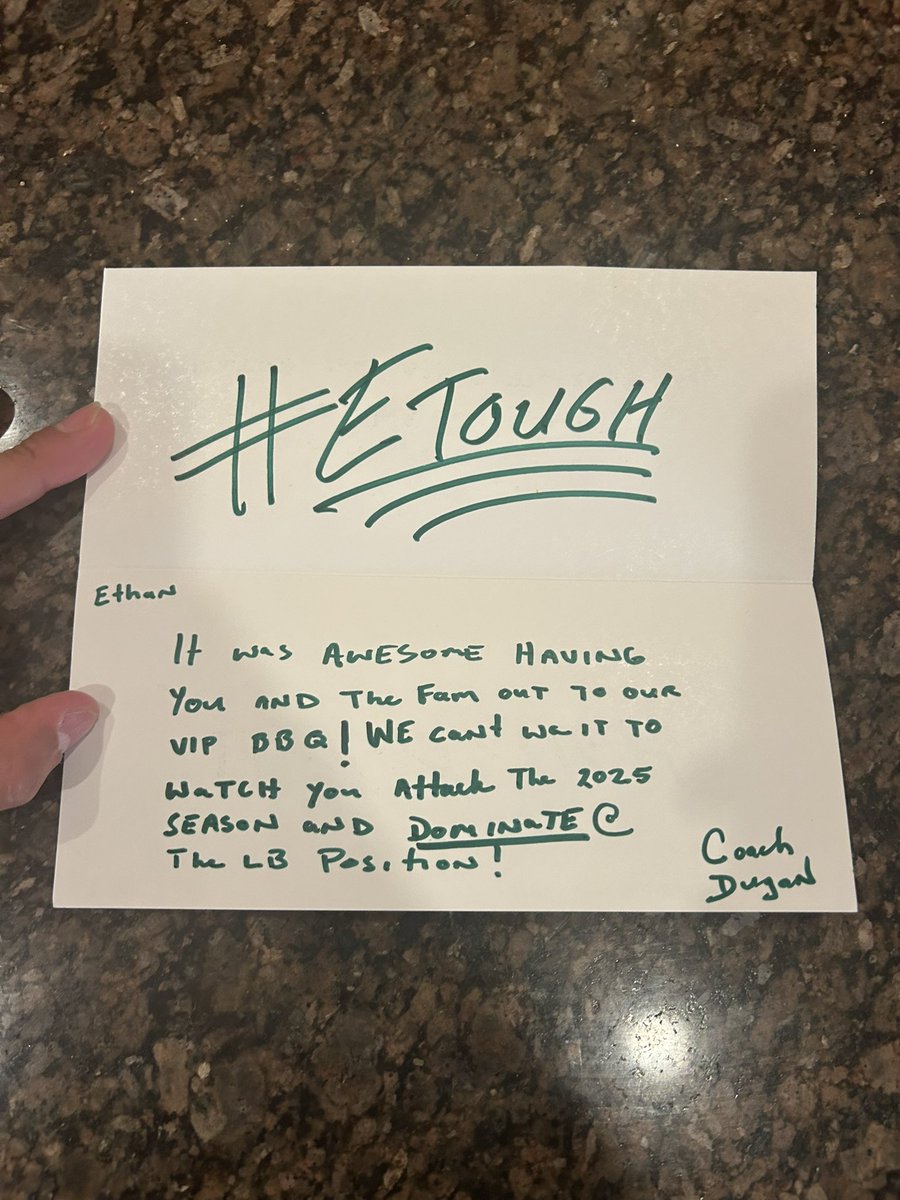 #ETOUGH
Ethan
It was AWESOME HAVING
You AND The Fam out TO OUR
VIP BBQ! WE cant waIT TO
WaTCH you Attack The 2025
SEASON and DOMINaTE @
The LB Position!
Coach
Dugan